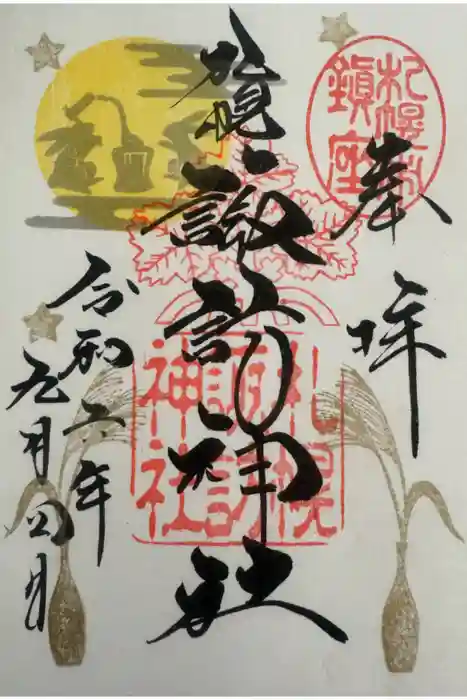 奉拝
札幌諏訪神社
令和六年
九月四日
鎮座
札幌
諏訪
神社